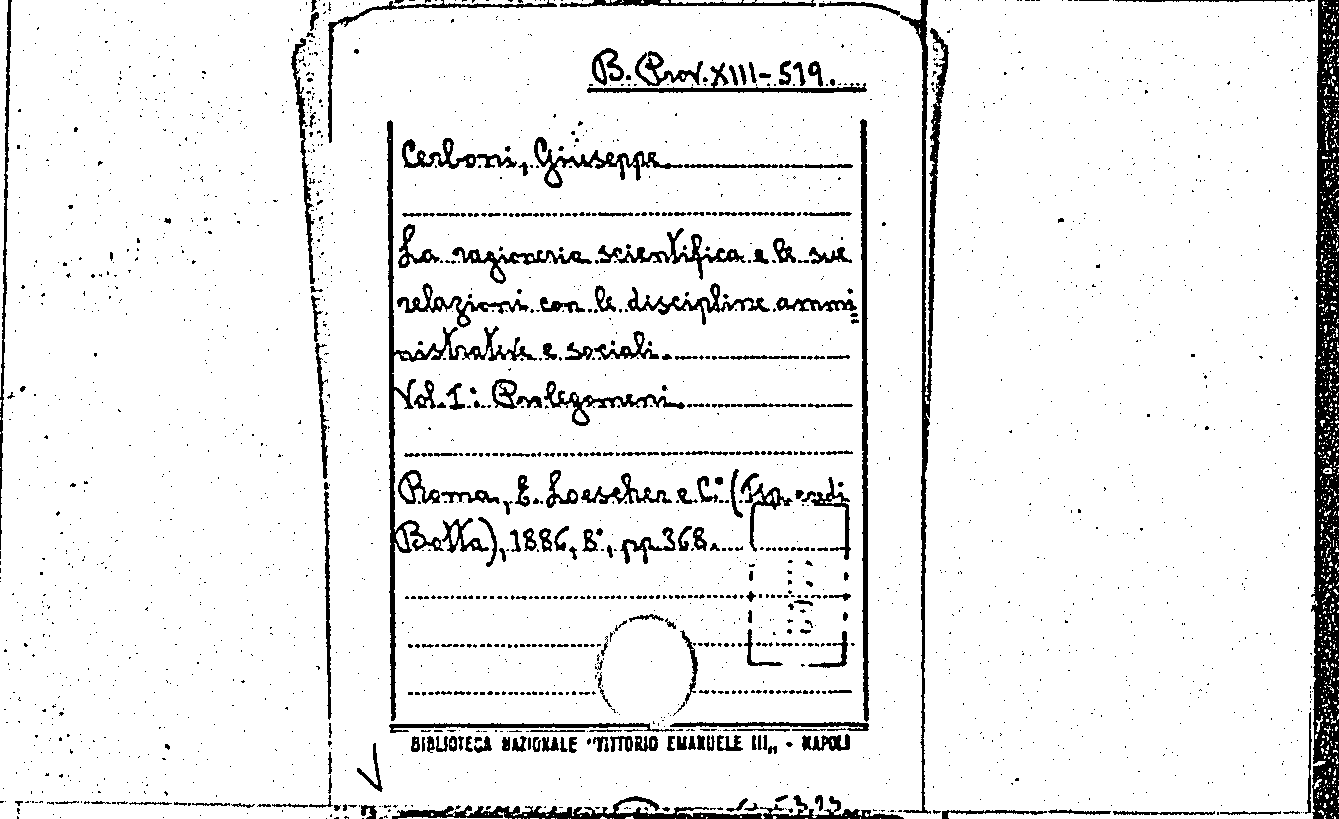 B. Prov. XIII-519.
Cerboni, Giuseppe
La ragioneria scientifica e le sue
relazioni con le discipline ammi=
nistrative e sociali.
Vol. I: Prolegomeni.
Roma, E. Loescher e C.° (Tip. eredi
Botta), 1886, 8°, pp 368.
BIBLIOTECA NAZIONALE "VITTORIO EMANUELE III„ - NAPOLI